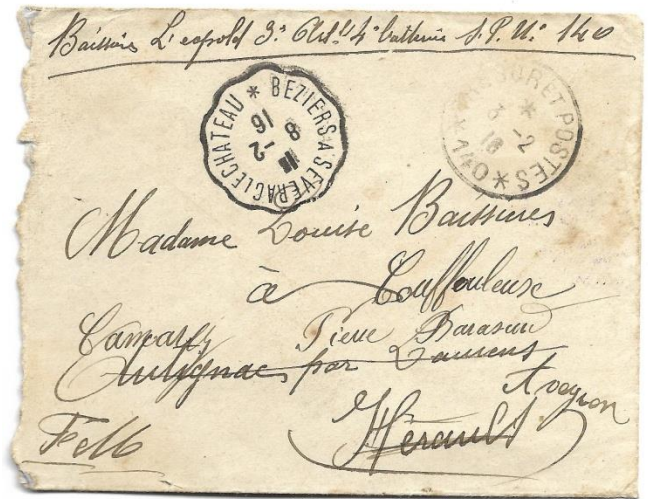 Baissies Léopold 3e Artie 4e batterie S.P. N° 140
BEZIERS A SEVERAC LE CHATEAU *
8 -2 16
TRESOR ET POSTES * 140 *
3 -2 16
Madame Louise Baissies
à Couffouleux
Camarès
Autignac par Laurens
Aveyron
Hérault
F M